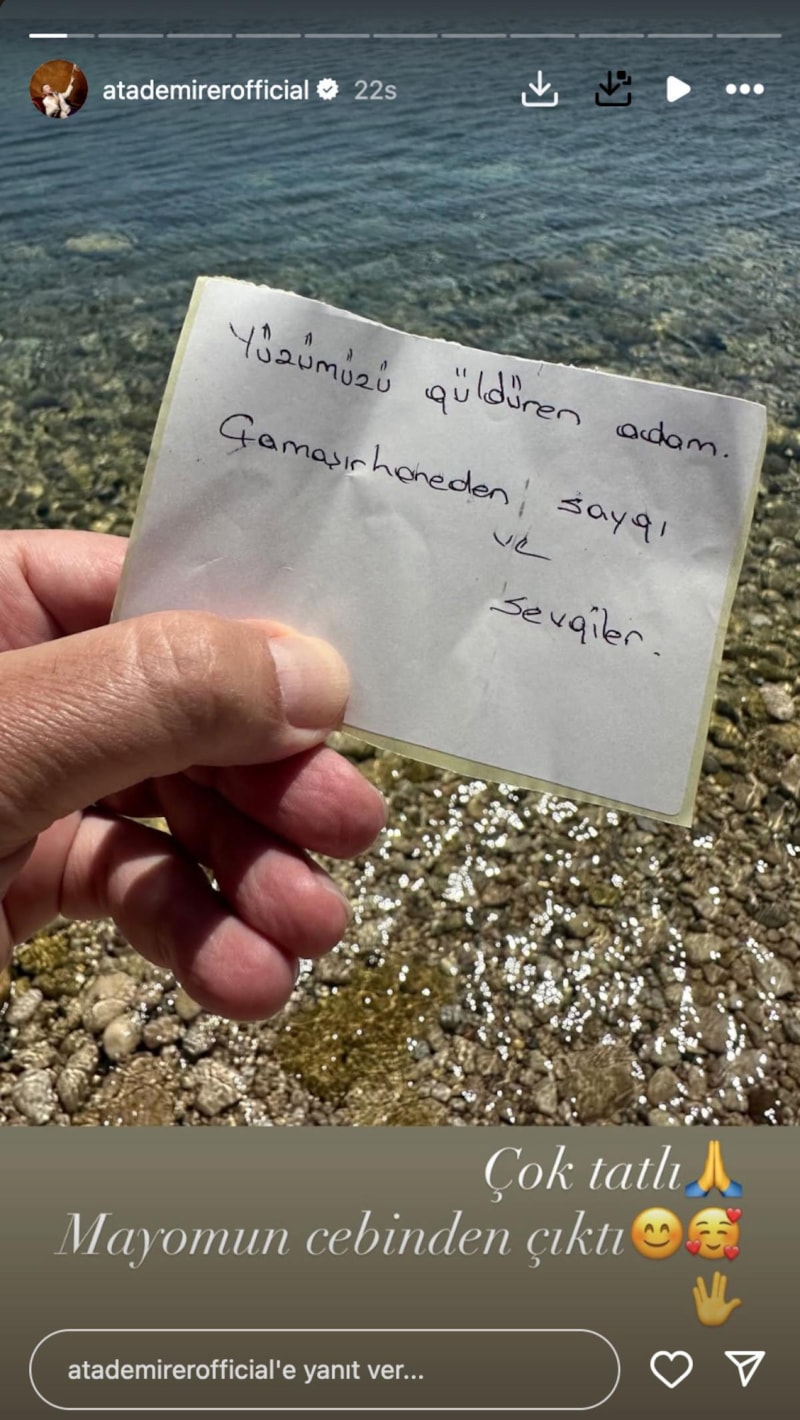 atademirerofficial 22s
Yüzümüzü güldüren adam.
Çamaşırhaneden, saygı
ve
sevgiler.
Çok tatlı🙏
Mayomun cebinden çıktı😊🥰
🖖
atademirerofficial'e yanıt ver...